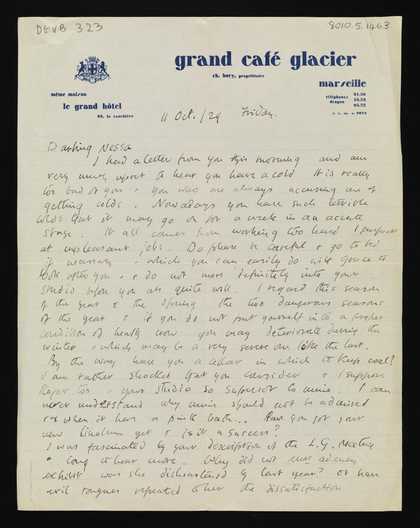 DGVB 323
8010.5.1463
grand café glacier
ch. bory, propriétaire
marseille
même maison
le grand hôtel
téléphones
11 Oct./29 Friday.
Darling Nessa
I had a letter from you this morning and am
very much upset to hear you have a cold. It is really
too bad of you & you who are always accusing me of
getting colds. Nowadays you have such terrible
colds that it may go on for a week in an acute
stage. It all comes from working too hard I suppose
at unpleasant jobs. Do please be careful & go to bed
if necessary, which you can easily do with Grace to
look after you & do not move definitely into your
studio before you are quite well. I regard this season
of the year & the spring the two dangerous seasons
of the year & if you do not put yourself into a proper
condition of health now you may deteriorate during the
winter which may be a very severe one like the last.
By the way have you a cellar in which to keep coal?
I am rather shocked that you consider & I suppose
Roger too your studio so superior to mine. I can
never understand why mine should not be admired
when it has a bath... Have you got your
new linoleum yet & is it a success?
I was fascinated by your description of the L.G. meeting
& long to hear more. Why did not
exhibit was she disheartened by last year? or have
evil tongues repeated to her the dissatisfaction